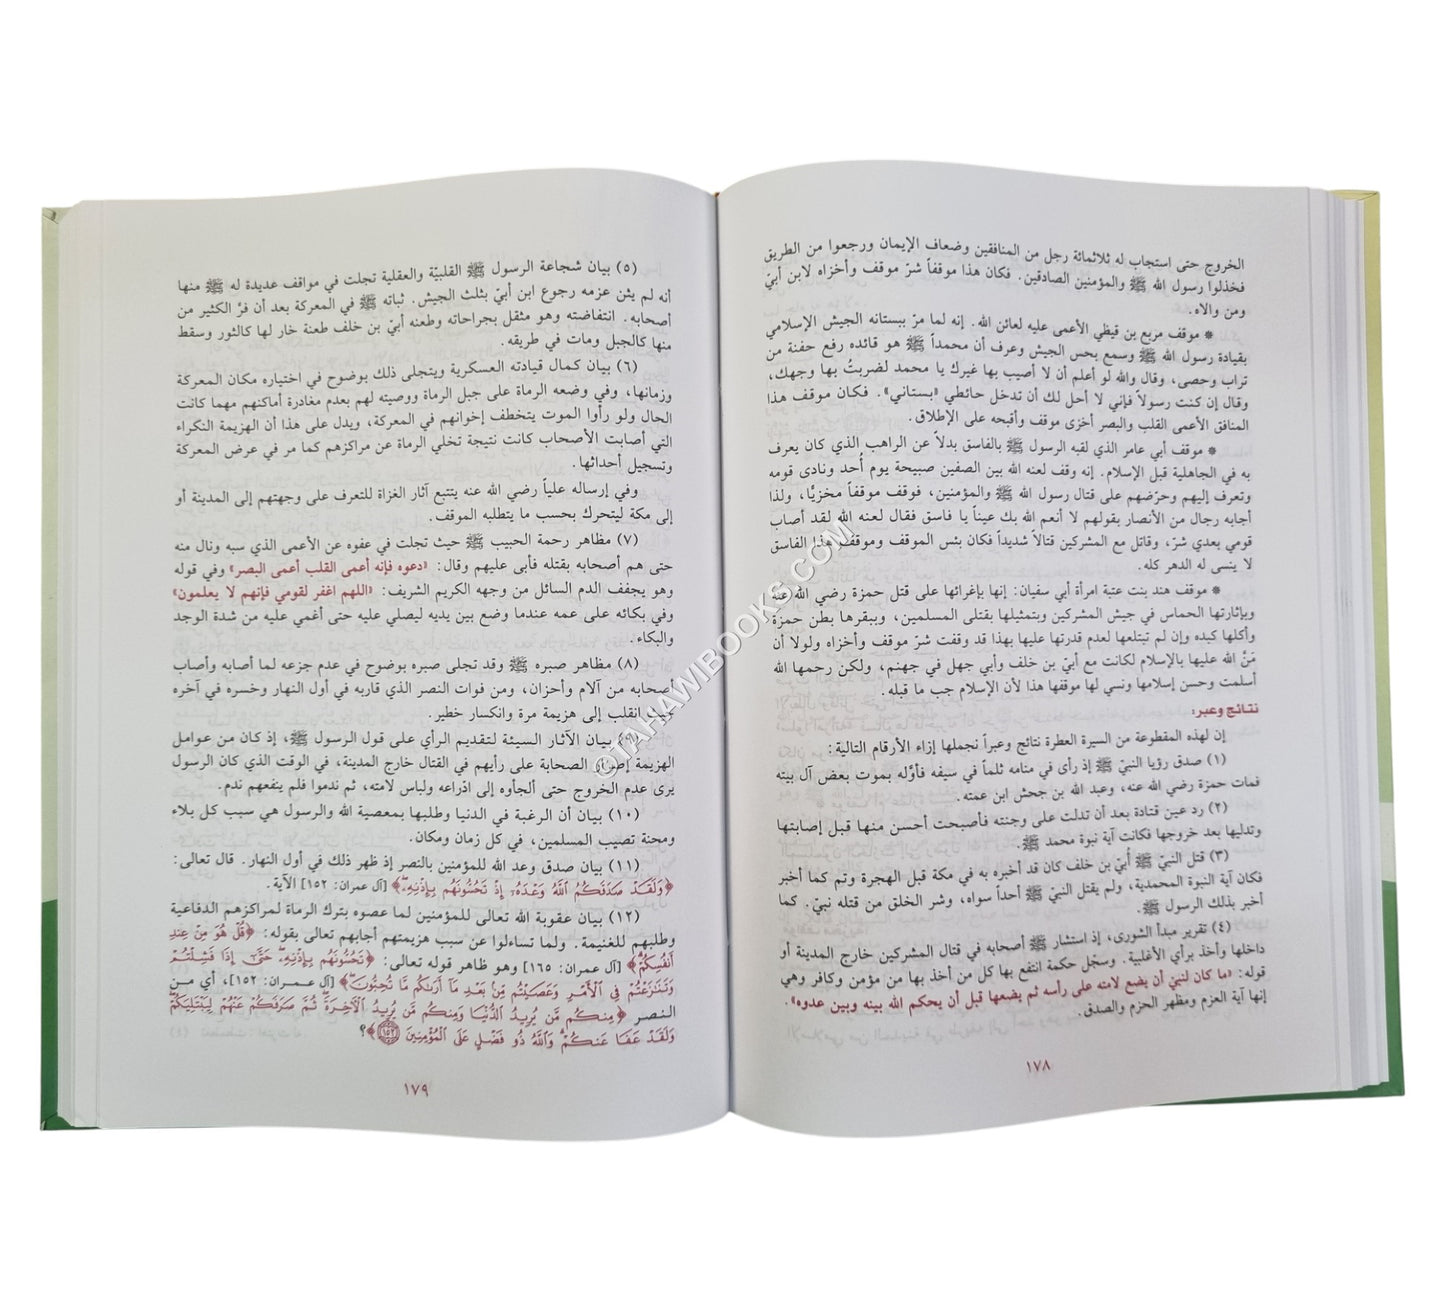 الخروج حتى استجاب له ثلاثمائة رجل من المنافقين وضعاف الإيمان ورجعوا من الطريق
فخذلوا رسول الله ﷺ والمؤمنين الصادقين. فكان هذا موقفاً شرّ موقف وأخزاه لابن أبيّ
ومن والاه.
* موقف مربع بن قيظي الأعمى عليه لعائن الله. إنه لما مرّ ببستانه الجيش الإسلامي
بقيادة رسول الله ﷺ وسمع بحس الجيش وعرف أن محمداً ﷺ هو قائده رفع حفنة من
تراب وحصى، وقال والله لو أعلم أن لا أصيب بها غيرك يا محمد لضربتُ بها وجهك،
وقال إن كنت رسولاً فإني لا أحل لك أن تدخل حائطي «بستاني». فكان موقف هذا
المنافق الأعمى القلب والبصر أخزى موقف وأقبحه على الإطلاق.
* موقف أبي عامر الذي لقبه الرسول ﷺ بالفاسق بدلاً عن الراهب الذي كان يعرف
به في الجاهلية قبل الإسلام. إنه وقف لعنه الله بين الصفين صبيحة يوم أُحد ونادى قومه
وتعرف إليهم وحرّضهم على قتال رسول الله ﷺ والمؤمنين، فوقف موقفاً مخزيًّا، ولذا
أجابه رجال من الأنصار بقولهم لا أنعم الله بك عيناً يا فاسق فقال لعنه الله لقد أصاب
قومي بعدي شرّ، وقاتل مع المشركين قتالاً شديداً فكان بئس الموقف وموقف هذا الفاسق
لا ينسى له الدهر كله.
* موقف هند بنت عتبة امرأة أبي سفيان: إنها بإغرائها على قتل حمزة رضي الله عنه
وبإثارتها الحماس في جيش المشركين وبتمثيلها بقتلى المسلمين، وببقرها بطن حمزة
وأكلها كبده وإن لم تبتلعها لعدم قدرتها عليها بهذا قد وقفت شرّ موقف وأخزاه ولولا أن
مَنَّ الله عليها بالإسلام لكانت مع أبيّ بن خلف وأبي جهل في جهنم، ولكن رحمها الله
أسلمت وحسن إسلامها ونسي لها موقفها هذا لأن الإسلام جب ما قبله.
نتائج وعبر:
إن لهذه المقطوعة من السيرة العطرة نتائج وعبراً نجملها إزاء الأرقام التالية:
(١) صدق رؤيا النبيّ ﷺ إذ رأى في منامه ثلماً في سيفه فأوَّله بموت بعض آل بيته
فمات حمزة رضي الله عنه، وعبد الله بن جحش ابن عمته.
(٢) رد عين قتادة بعد أن تدلت على وجنته فأصبحت أحسن منها قبل إصابتها
وتدليها بعد خروجها فكانت آية نبوة محمد ﷺ.
(٣) قتل النبيّ ﷺ أُبيّ بن خلف كان قد أخبره به في مكة قبل الهجرة وتم كما أخبر
فكان آية النبوة المحمدية، ولم يقتل النبيّ ﷺ أحداً سواه، وشر الخلق من قتله نبيّ. كما
أخبر بذلك الرسول ﷺ.
(٤) تقرير مبدأ الشورى، إذ استشار ﷺ أصحابه في قتال المشركين خارج المدينة أو
داخلها وأخذ برأي الأغلبية. وسجّل حكمة انتفع بها كل من أخذ بها من مؤمن وكافر وهي
قوله: «ما كان لنبيّ أن يضع لامته على رأسه ثم يضعها قبل أن يحكم الله بينه وبين عدوه».
إنها آية العزم ومظهر الحزم والصدق.
١٧٨
(٥) بيان شجاعة الرسول ﷺ القلبيّة والعقلية تجلت في مواقف عديدة له ﷺ منها
أنه لم يثن عزمه رجوع ابن أبيّ بثلث الجيش. ثباته ﷺ في المعركة بعد أن فرّ الكثير من
أصحابه. انتفاضته وهو مثقل بجراحاته وطعنه أبيّ بن خلف طعنة خار لها كالثور وسقط
منها كالجبل ومات في طريقه.
(٦) بيان كمال قيادته العسكرية ويتجلى ذلك بوضوح في اختياره مكان المعركة
وزمانها، وفي وضعه الرماة على جبل الرماة ووصيته لهم بعدم مغادرة أماكنهم مهما كانت
الحال ولو رأوا الموت يتخطف إخوانهم في المعركة، ويدل على هذا أن الهزيمة النكراء
التي أصابت الأصحاب كانت نتيجة تخلي الرماة عن مراكزهم كما مر في عرض المعركة
وتسجيل أحداثها.
وفي إرساله علياً رضي الله عنه يتتبع آثار الغزاة للتعرف على وجهتهم إلى المدينة أو
إلى مكة ليتحرك بحسب ما يتطلبه الموقف.
(٧) مظاهر رحمة الحبيب ﷺ حيث تجلت في عفوه عن الأعمى الذي سبه ونال منه
حتى هم أصحابه بقتله فأبى عليهم وقال: «دعوه فإنه أعمى القلب أعمى البصر» وفي قوله
وهو يجفف الدم السائل من وجهه الكريم الشريف: «اللهم اغفر لقومي فإنهم لا يعلمون»
وفي بكائه على عمه عندما وضع بين يديه ليصلي عليه حتى أغمي عليه من شدة الوجد
والبكاء.
(٨) مظاهر صبره ﷺ وقد تجلى صبره بوضوح في عدم جزعه لما أصابه وأصاب
أصحابه من آلام وأحزان، ومن فوات النصر الذي قاربه في أول النهار وخسره في آخره
حيث انقلب إلى هزيمة مرة وانكسار خطير.
(٩) بيان الآثار السيئة لتقديم الرأي على قول الرسول ﷺ، إذ كان من عوامل
الهزيمة إصرار الصحابة على رأيهم في القتال خارج المدينة، في الوقت الذي كان الرسول
يرى عدم الخروج حتى ألجأوه إلى اذراعه ولباس لامته، ثم ندموا فلم ينفعهم ندم.
(١٠) بيان أن الرغبة في الدنيا وطلبها بمعصية الله والرسول هي سبب كل بلاء
ومحنة تصيب المسلمين، في كل زمان ومكان.
(١١) بيان صدق وعد الله للمؤمنين بالنصر إذ ظهر ذلك في أول النهار. قال تعالى:
﴿وَلَقَدْ صَدَقَكُمُ اللَّهُ وَعْدَهُ إِذْ تَحُسُّونَهُم بِإِذْنِهِ﴾ [آل عمران: ١٥٢] الآية.
(١٢) بيان عقوبة الله تعالى للمؤمنين لما عصوه بترك الرماة لمراكزهم الدفاعية
وطلبهم للغنيمة. ولما تساءلوا عن سبب هزيمتهم أجابهم تعالى بقوله: ﴿قُلْ هُوَ مِنْ عِندِ
أَنفُسِكُمْ﴾ [آل عمران: ١٦٥] وهو ظاهر قوله تعالى: ﴿تَحُسُّونَهُم بِإِذْنِهِ حَتَّى إِذَا فَشِلْتُمْ
وَتَنَازَعْتُمْ فِي الْأَمْرِ وَعَصَيْتُم مِّن بَعْدِ مَا أَرَاكُم مَّا تُحِبُّونَ﴾ [آل عمران: ١٥٢]، أي من
النصر ﴿مِنكُم مَّن يُرِيدُ الدُّنْيَا وَمِنكُم مَّن يُرِيدُ الْآخِرَةَ ثُمَّ صَرَفَكُمْ عَنْهُمْ لِيَبْتَلِيَكُمْ
وَلَقَدْ عَفَا عَنكُمْ وَاللَّهُ ذُو فَضْلٍ عَلَى الْمُؤْمِنِينَ ١٥٢﴾؟
١٧٩
©TAHAWIBOOKS.COM